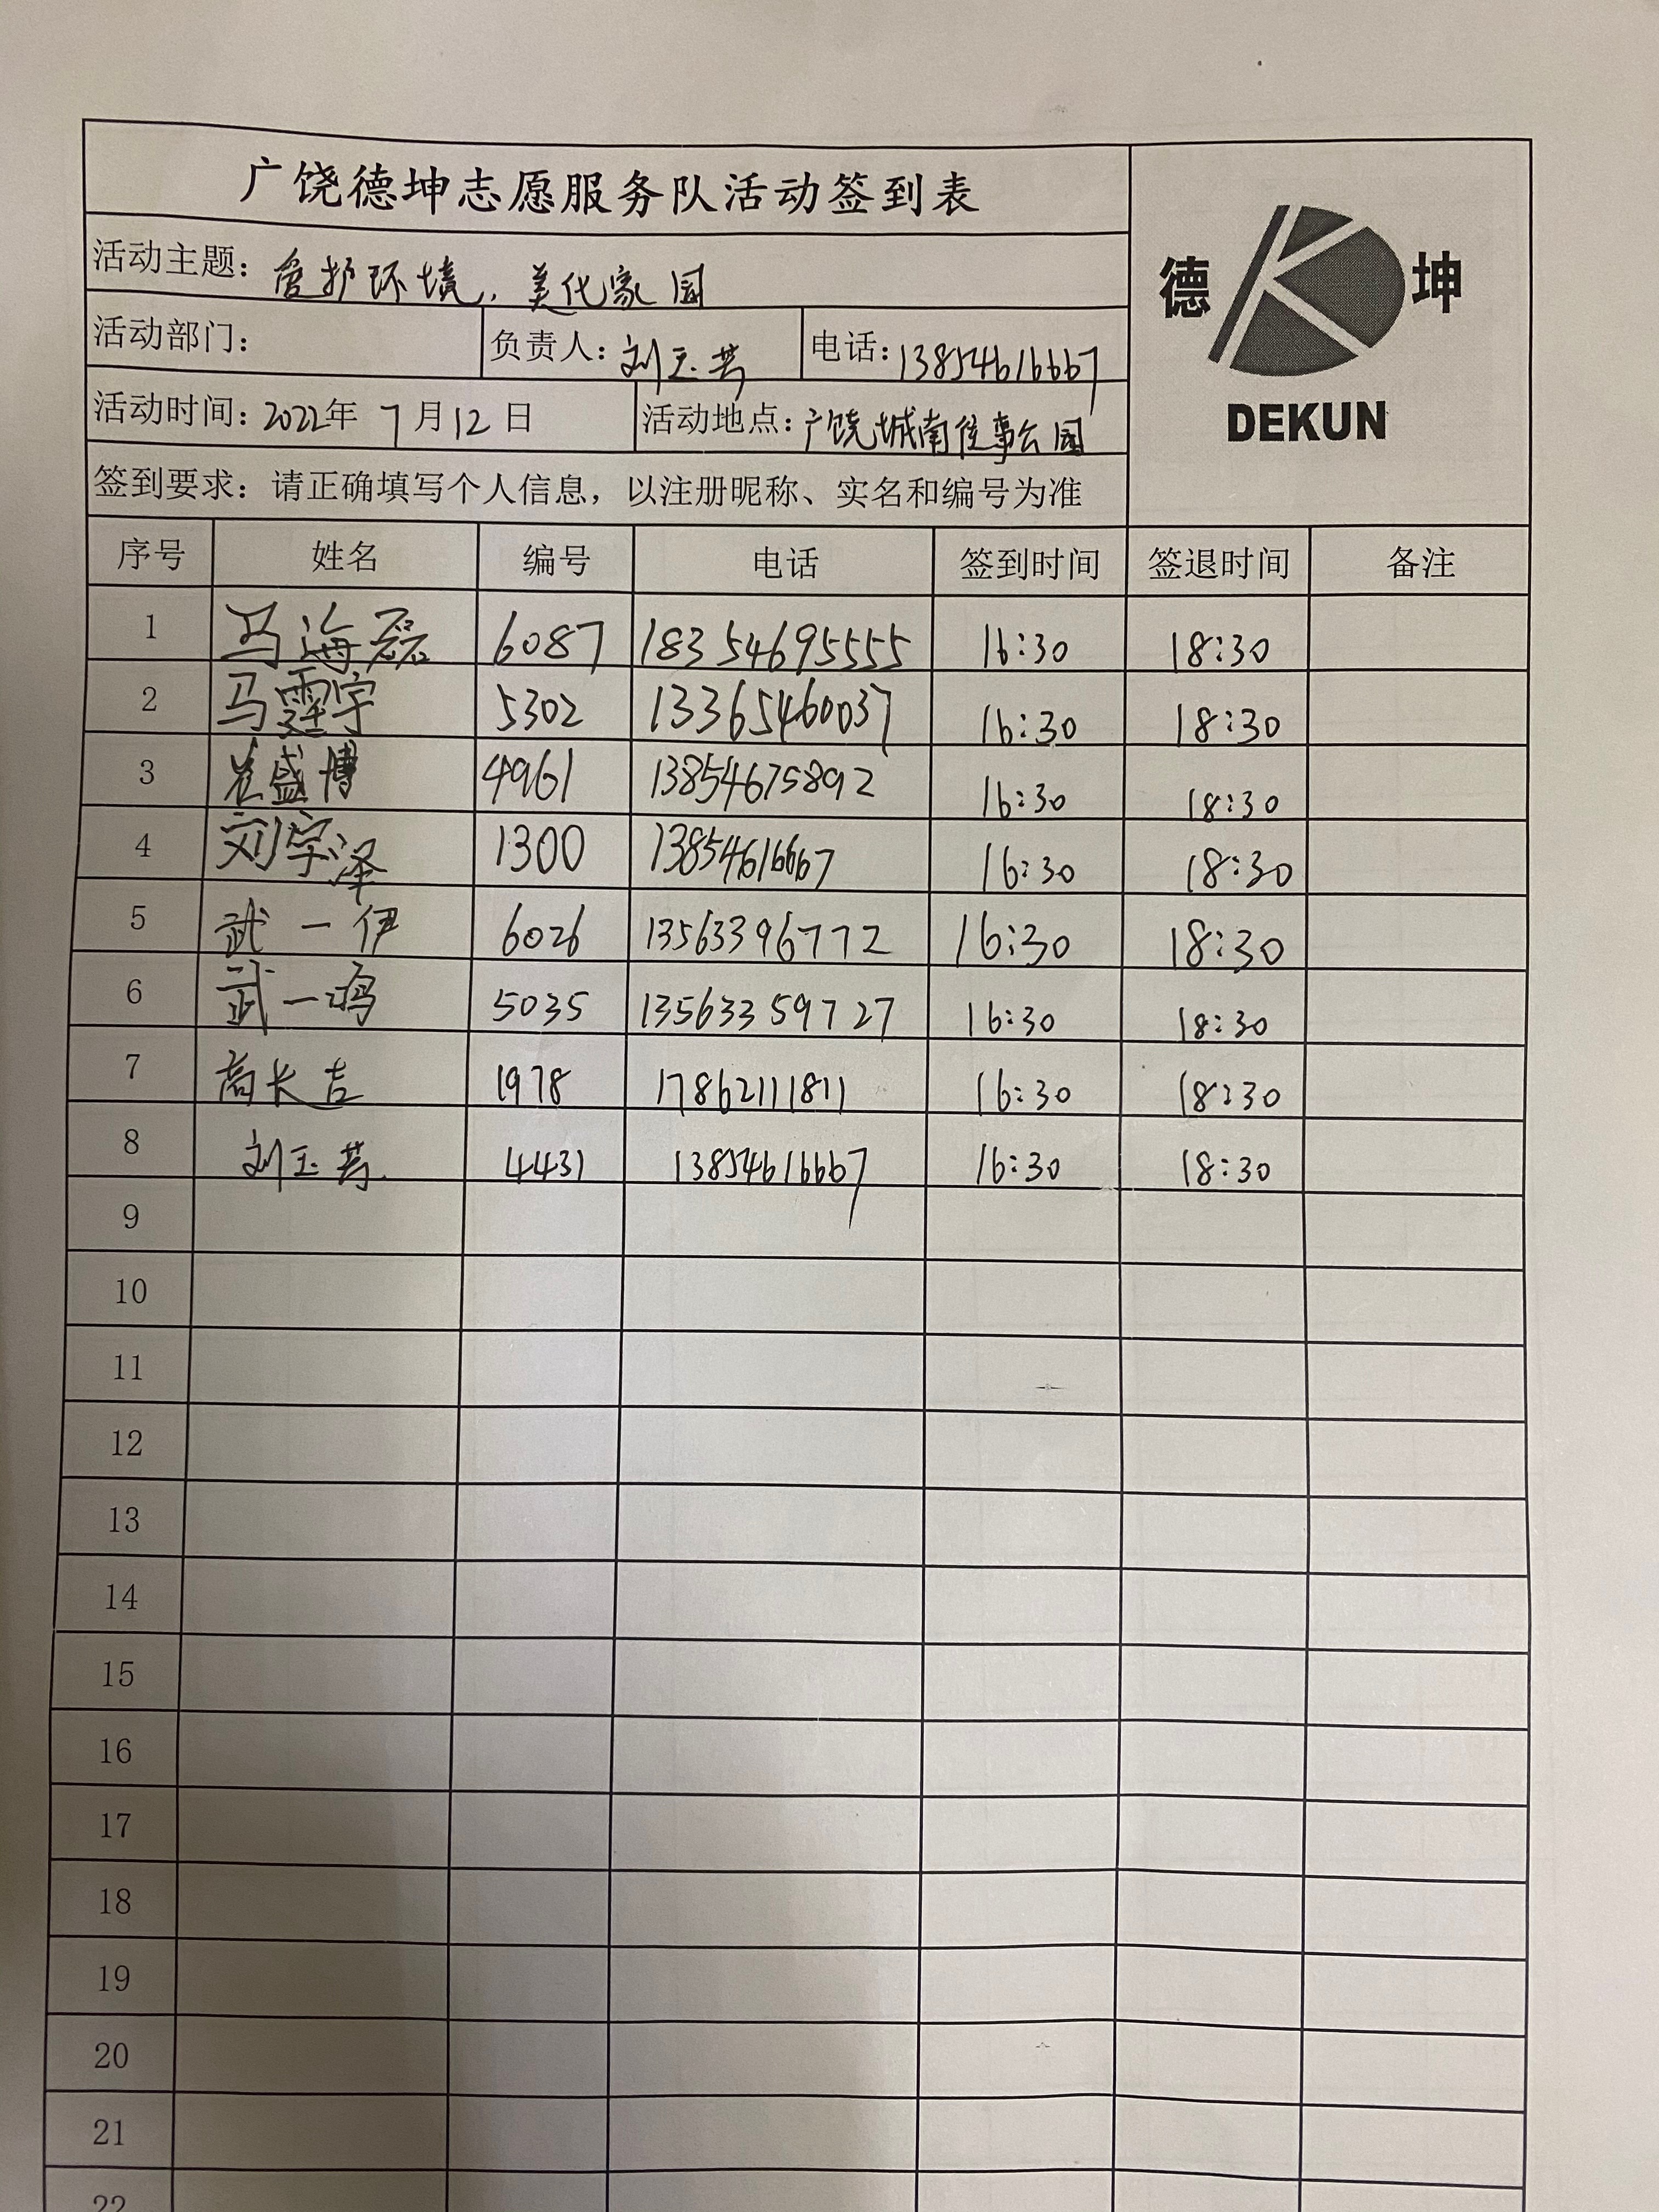 广饶德坤志愿服务队活动签到表
德 坤
DEKUN
活动主题：爱护环境，美化家园
活动部门： 负责人：刘玉芳 电话：13854616667
活动时间：2022年 7月12日 活动地点：广饶城南往事公园
签到要求：请正确填写个人信息，以注册昵称、实名和编号为准
序号 姓名 编号 电话 签到时间 签退时间 备注
1 马海磊 6087 18354695555 16:30 18:30
2 马霆宇 5302 13365460037 16:30 18:30
3 盛博 4961 13854675892 16:30 18:30
4 刘宇泽 1300 13854616667 16:30 18:30
5 武一伊 6026 13563396772 16:30 18:30
6 武一鸣 5035 13563359727 16:30 18:30
7 高长吉 1978 17862111811 16:30 18:30
8 刘玉芳 4431 13854616667 16:30 18:30
9
10
11
12
13
14
15
16
17
18
19
20
21
22